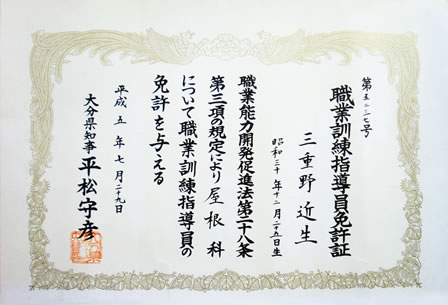 第五二二七号
職業訓練指導員免許証
三重野近生
昭和三十年十二月二十五日生
職業能力開発促進法第二十八条
第三項の規定により屋根科
について職業訓練指導員の
免許を与える
平成五年七月二十九日
大分県知事 平松守彦